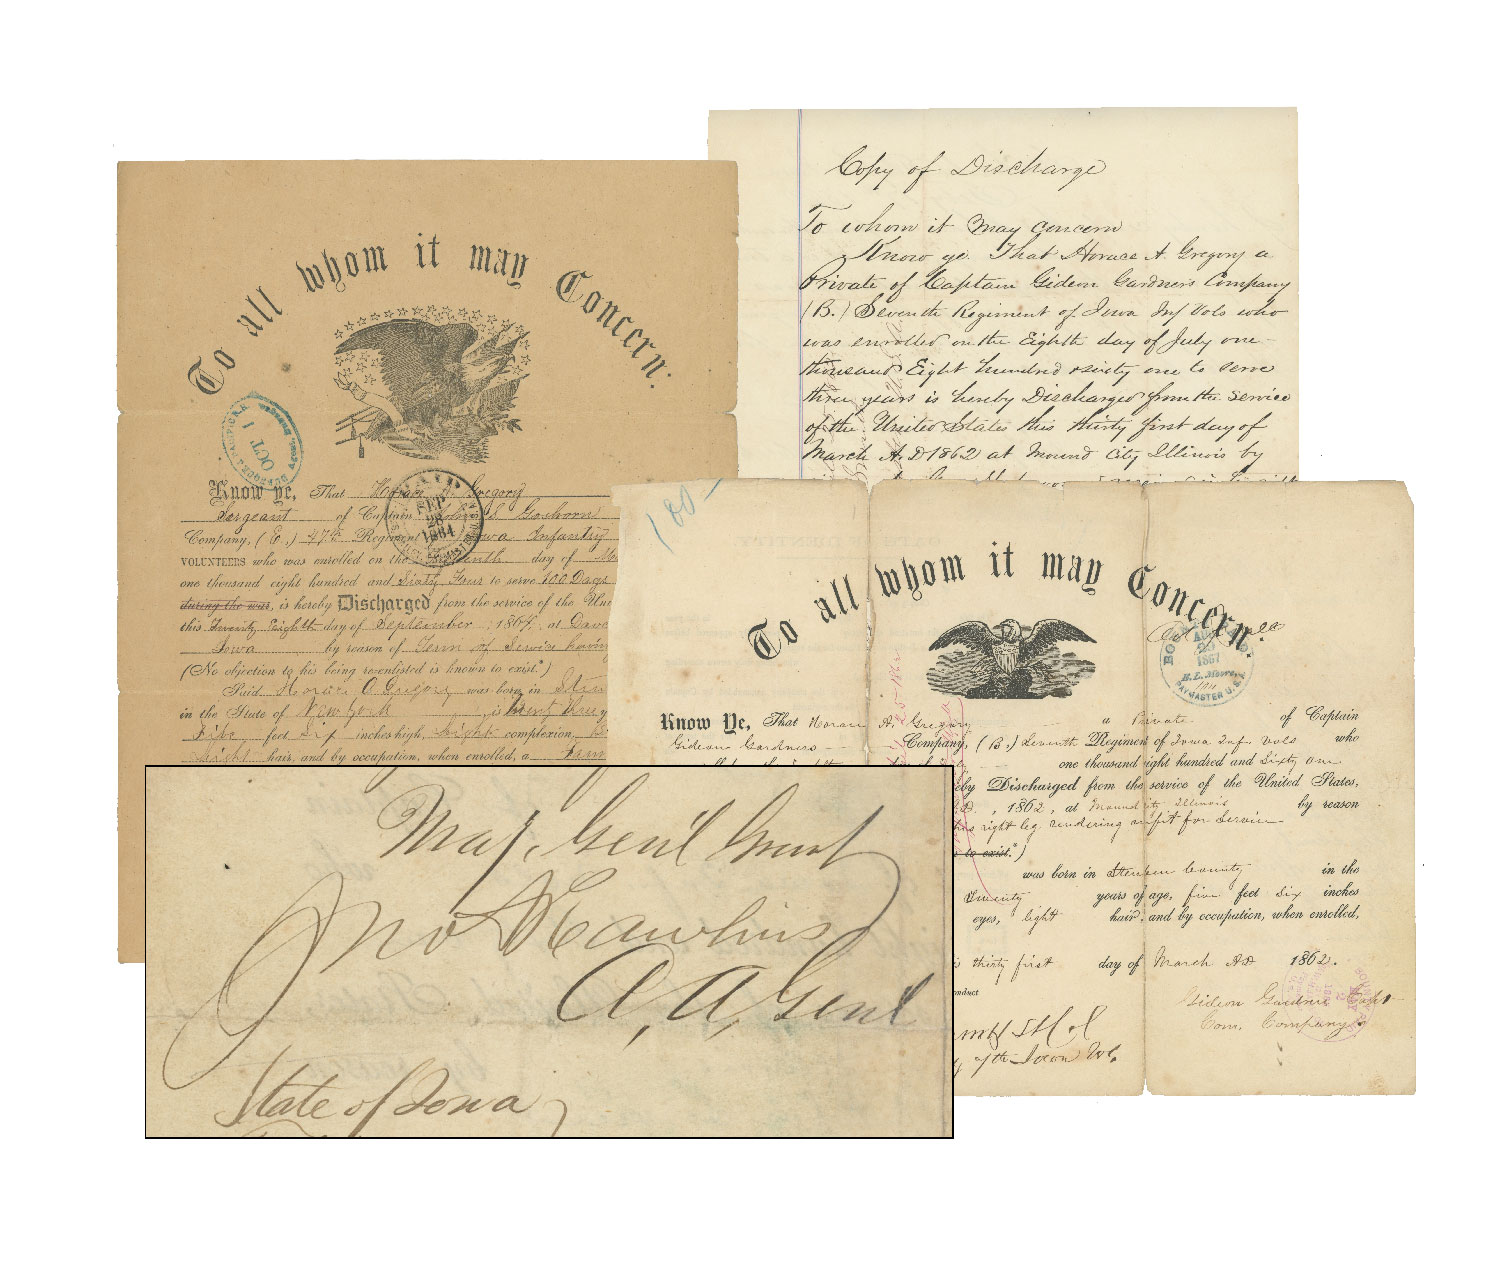 To all whom it may Concern:
OCT 1
Know ye, That Horace A. Gregory
Sergeant of Captain John L Goshorn
Company, (E.) 47th Regiment Iowa Infantry
VOLUNTEERS who was enrolled on the day of
one thousand eight hundred and Sixty Four to serve 100 Days
during the war, is hereby Discharged from the service of the
this Twenty Eighth day of September, 1864, at
Iowa by reason of Term of Service having
(No objection to his being reenlisted is known to exist.*)
Said Horace A Gregory was born in
in the State of New York is
Five feet Six inches high, Light complexion,
Light hair, and by occupation, when enrolled, a
PAID
SEP
28
1864
Copy of Discharge
To whom it May concern
Know ye. That Horace A. Gregory a
Private of Captain Gideon Gardners Company
(B.) Seventh Regiment of Iowa Inf Vols who
was enrolled on the Eighth day of July one
thousand Eight hundred sixty one to serve
three years is hereby Discharged from the service
of the United States this thirty first day of
March A.D 1862 at Mound City Illinois by
100-
To all whom it may Concern:
1867
PAYMASTER U.S.A.
Know Ye, That Horace A. Gregory a Private of Captain
Gideon Gardners Company, (B.) Seventh Regiment of Iowa Inf. Vols who
one thousand eight hundred and Sixty one
Discharged from the service of the United States,
, 1862, at Mound City Illinois by reason
his right leg rendering unfit for Service
to exist.*)
was born in Steuben County in the
Twenty years of age, five feet Six inches
eyes, light hair, and by occupation, when enrolled,
thirty first day of March AD 1862.
Gideon Gardner Capt
Com. Company
7th Iowa Vol.
Maj. Genl Grant
Jno A Rawlins
A, A, Genl
State of Iowa